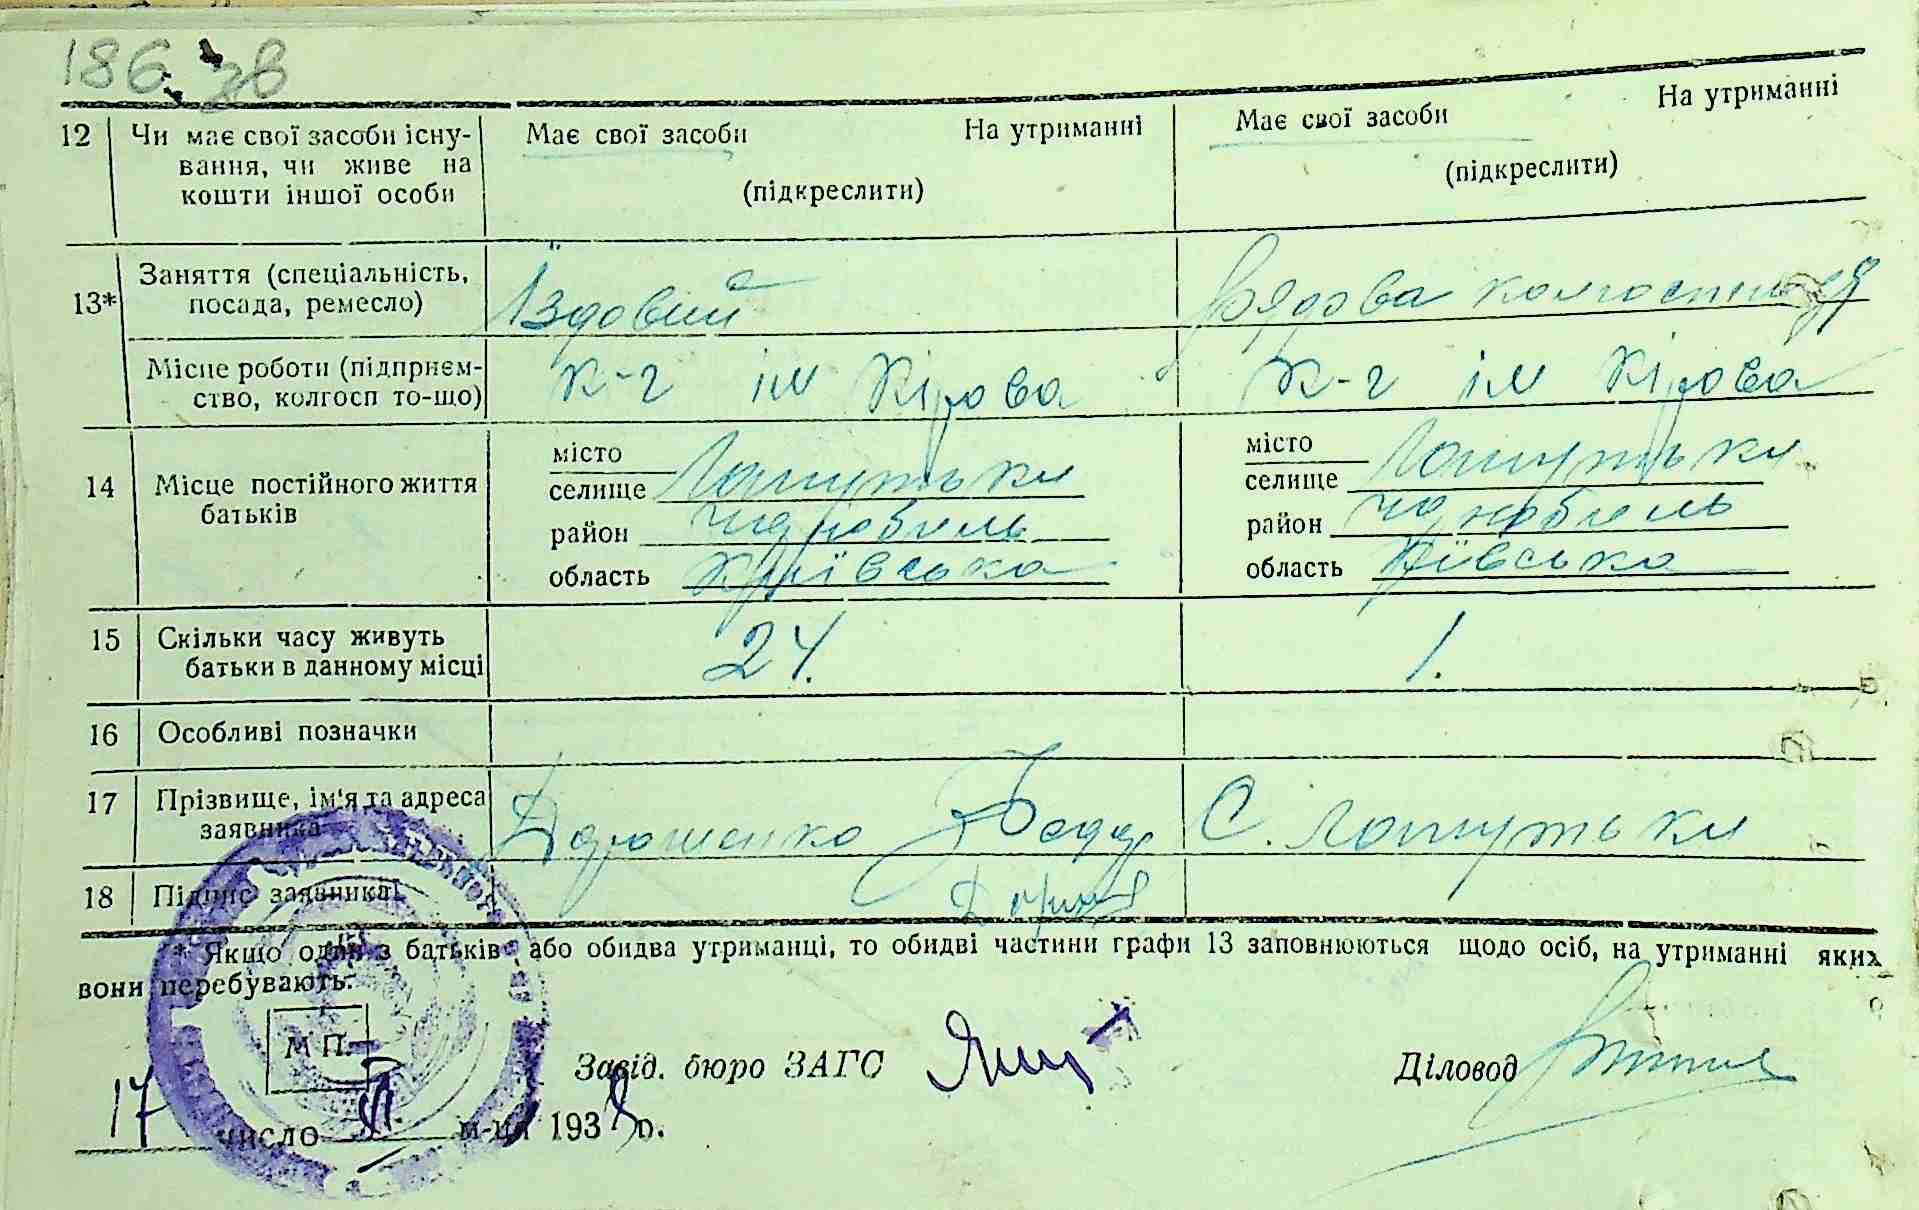 186 зв
12 Чи має свої засоби існу- Має свої засоби На утриманні Має свої засоби На утриманні
вання, чи живе на
кошти іншої особи (підкреслити) (підкреслити)
13* Заняття (спеціальність,
посада, ремесло) Їздовий Рядова колгоспниця
Місце роботи (підприєм- к-г ім Кірова к-г ім Кірова
ство, колгосп то-що)
місто місто
14 Місце постійного життя селище Лопутьки селище Лопутьки
батьків район Чорнобиль район Чорнобиль
область Київська область Київська
15 Скільки часу живуть
батьки в данному місці 24. 1.
16 Особливі позначки
17 Прізвище, ім'я та адреса
заявника Дорошенко Федор С. Лопутьки
18 Підпис заявника
* Якщо один з батьків або обидва утриманці, то обидві частини графи 13 заповнюються щодо осіб, на утриманні яких
вони перебувають.
М П.
Завід. бюро ЗАГС Діловод
17 число м-ця 193 р.